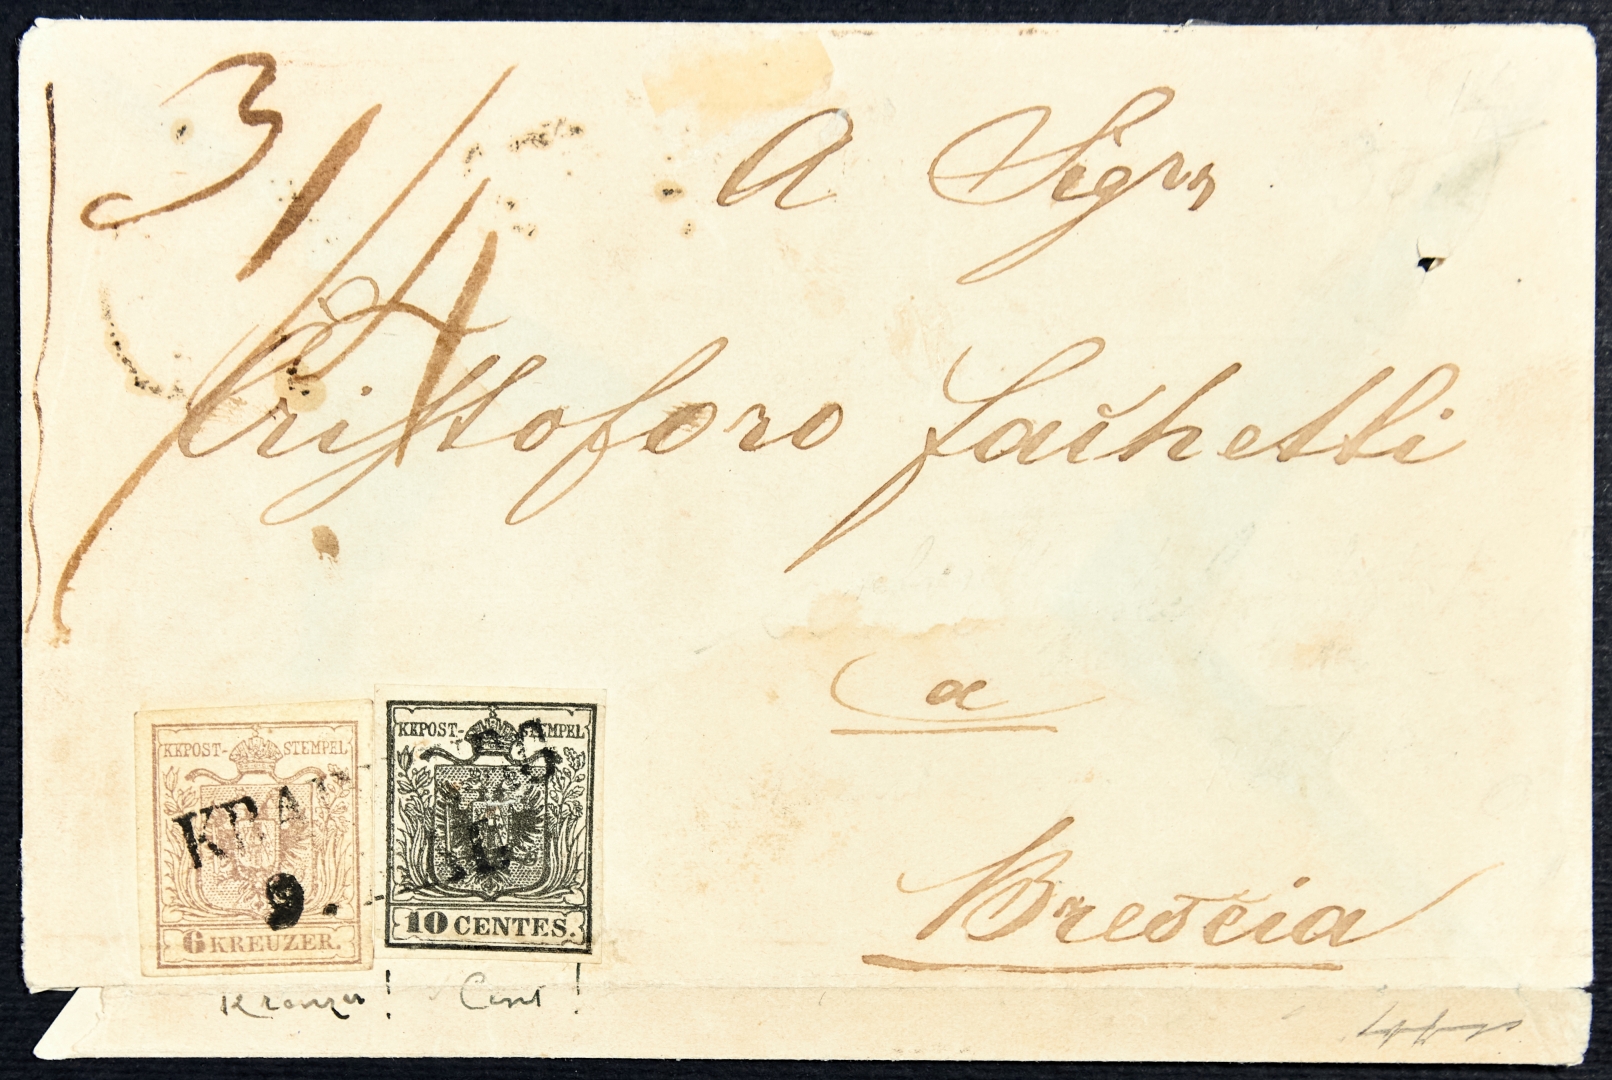 3/4
A Sigr
Cristoforo Faihetti
a
Brescia
KKPOST-STEMPEL
6 KREUZER.
KKPOST-STEMPEL
10 CENTES.
9.
Kreuzer! Cent!